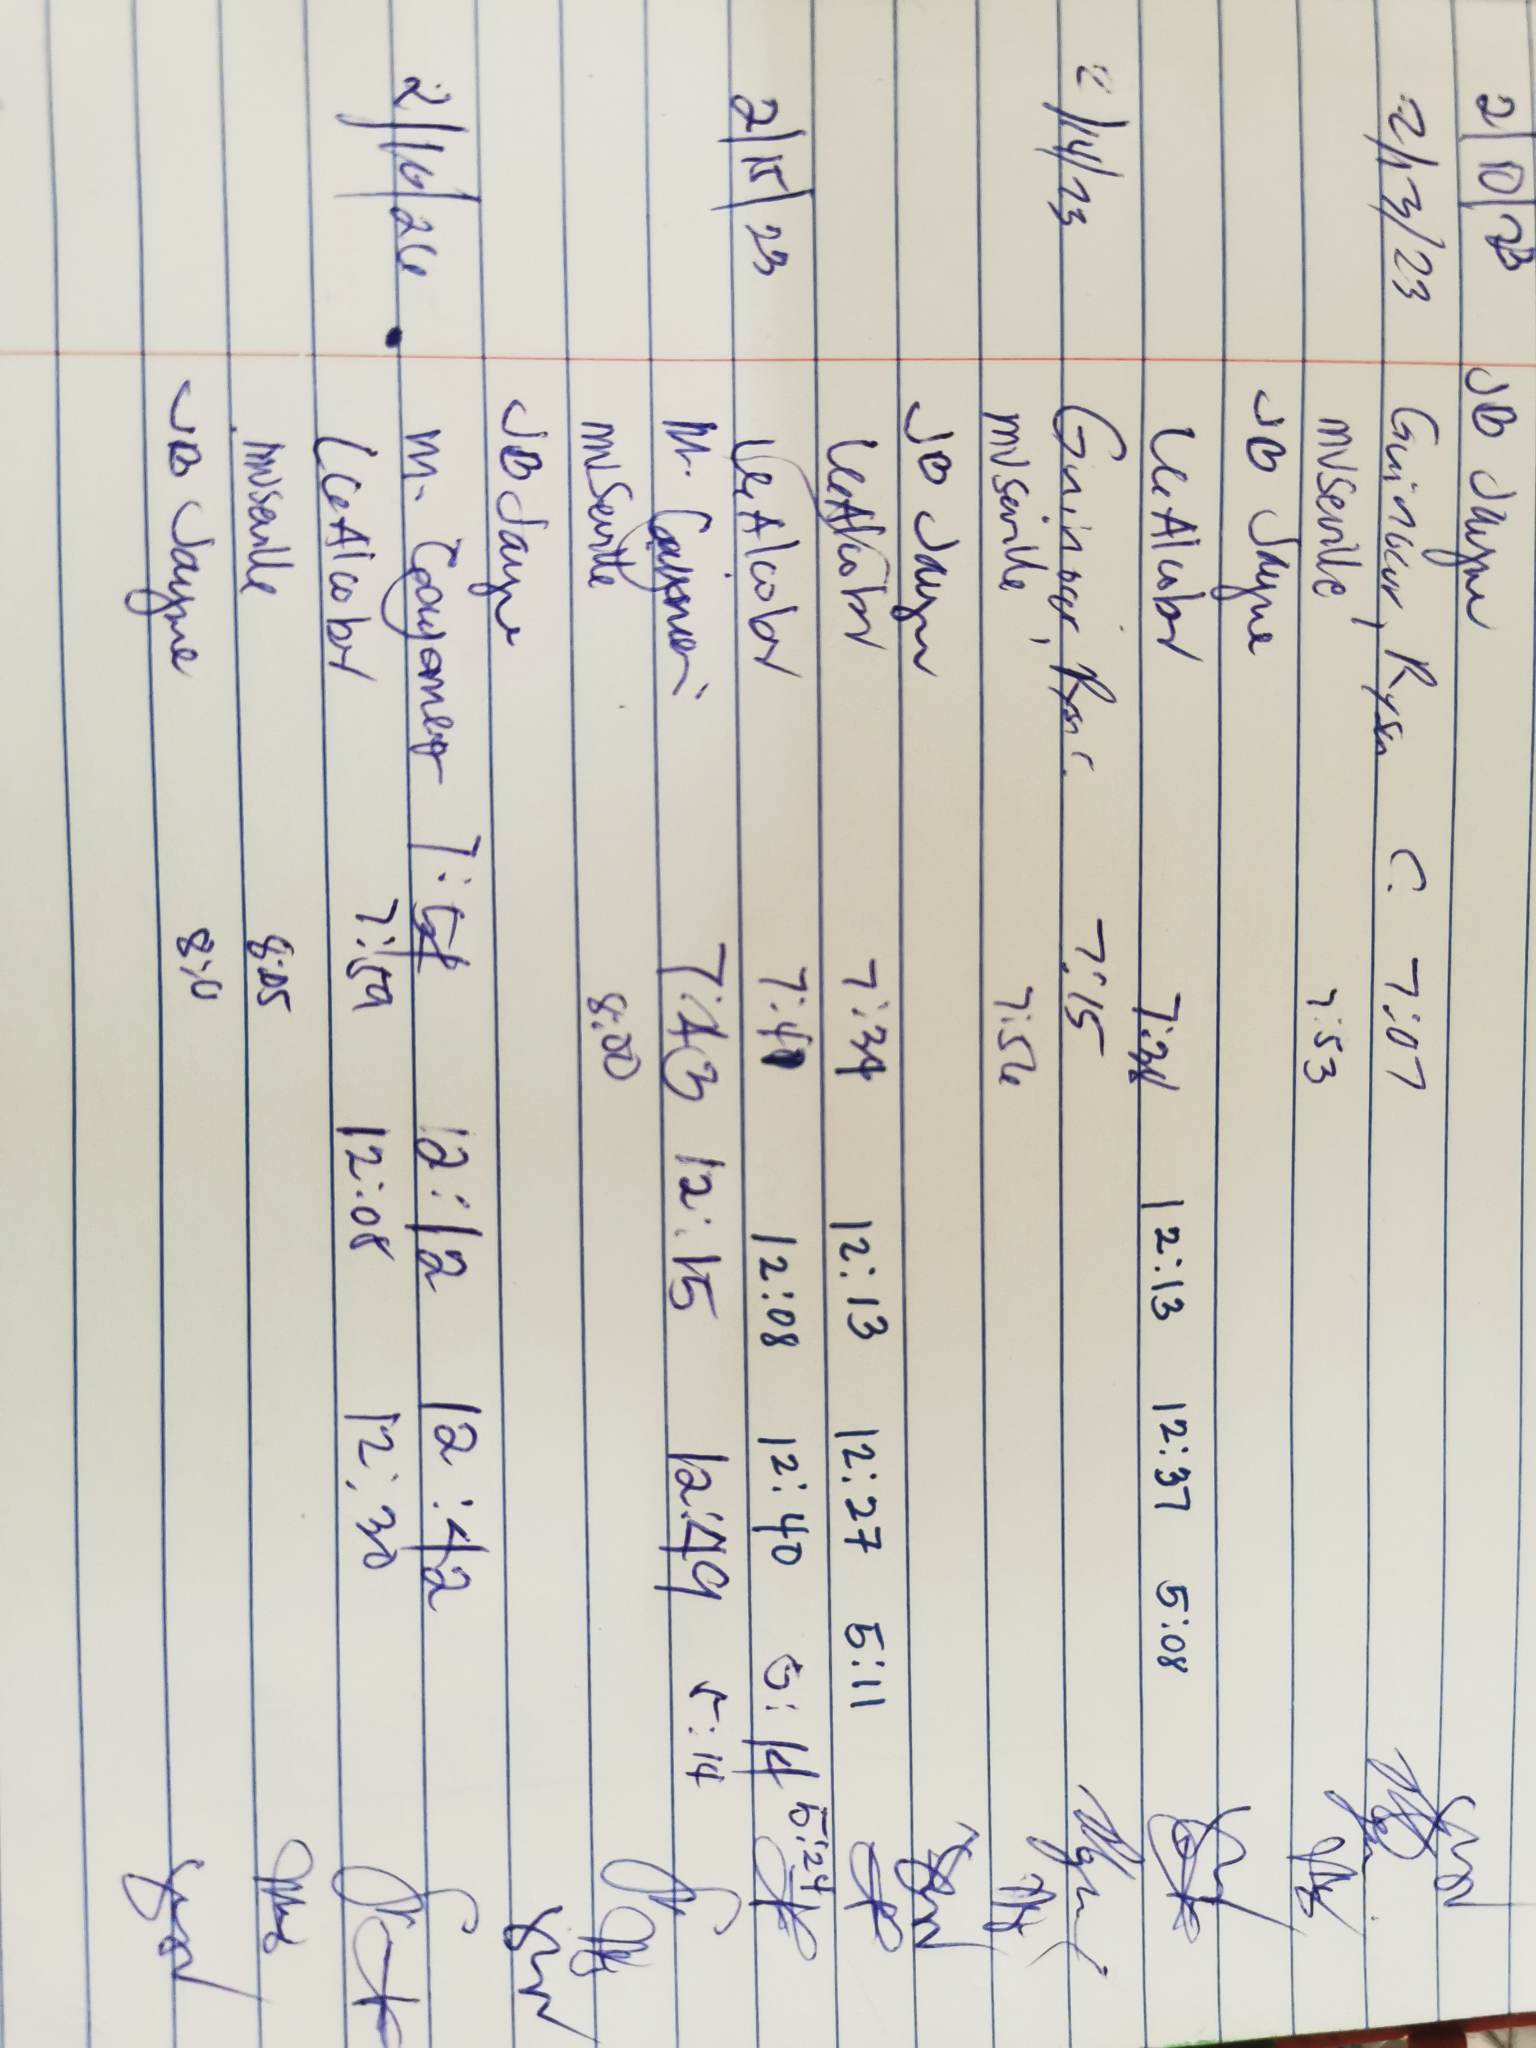 2/10/23 JB Jayne
2/13/23 Guinocor, Ryan C. 7:07
mvseville 7:53
JB Jayne
LCAlcober 7:38 12:13 12:37 5:08
2/14/23 Guinocor, Ryan C. 7:15
mvseville 7:56
JB Jayne
LCAlcober 7:34 12:13 12:27 5:11
2/15/23 LCAlcober 7:41 12:08 12:40 5:14 5:24
M. 7:43 12:15 12:49 5:14
mvseville 8:00
JB Jayne
2/16/26 M. 12:12 12:42
LCAlcober 7:59 12:08 12:30
mvseville 8:05
JB Jayne